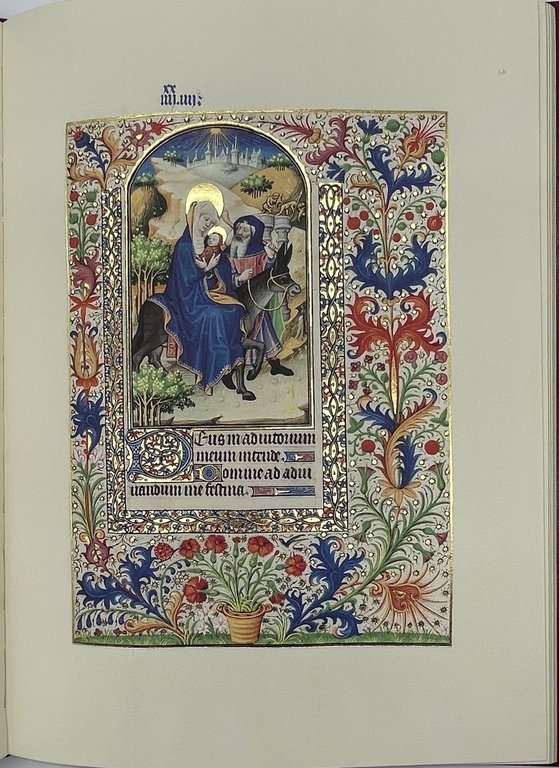 xx
iiij.iiij:
Deus in adiutorium
meum intende.
Domine ad adiu
uandum me festina.